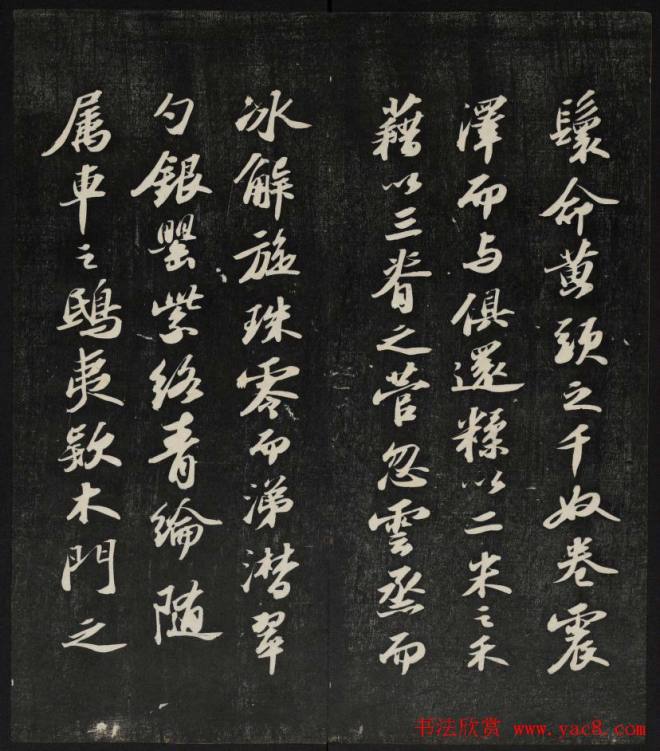 鬟命黄頭之千奴卷震
澤而与俱還糅以二米之禾
藉以三脊之菅忽雲烝而
冰解旋珠零而涕潸翠
勺銀罌紫絡青綸随
属車之鴟夷欵木門之
书法欣赏 www.yac8.com